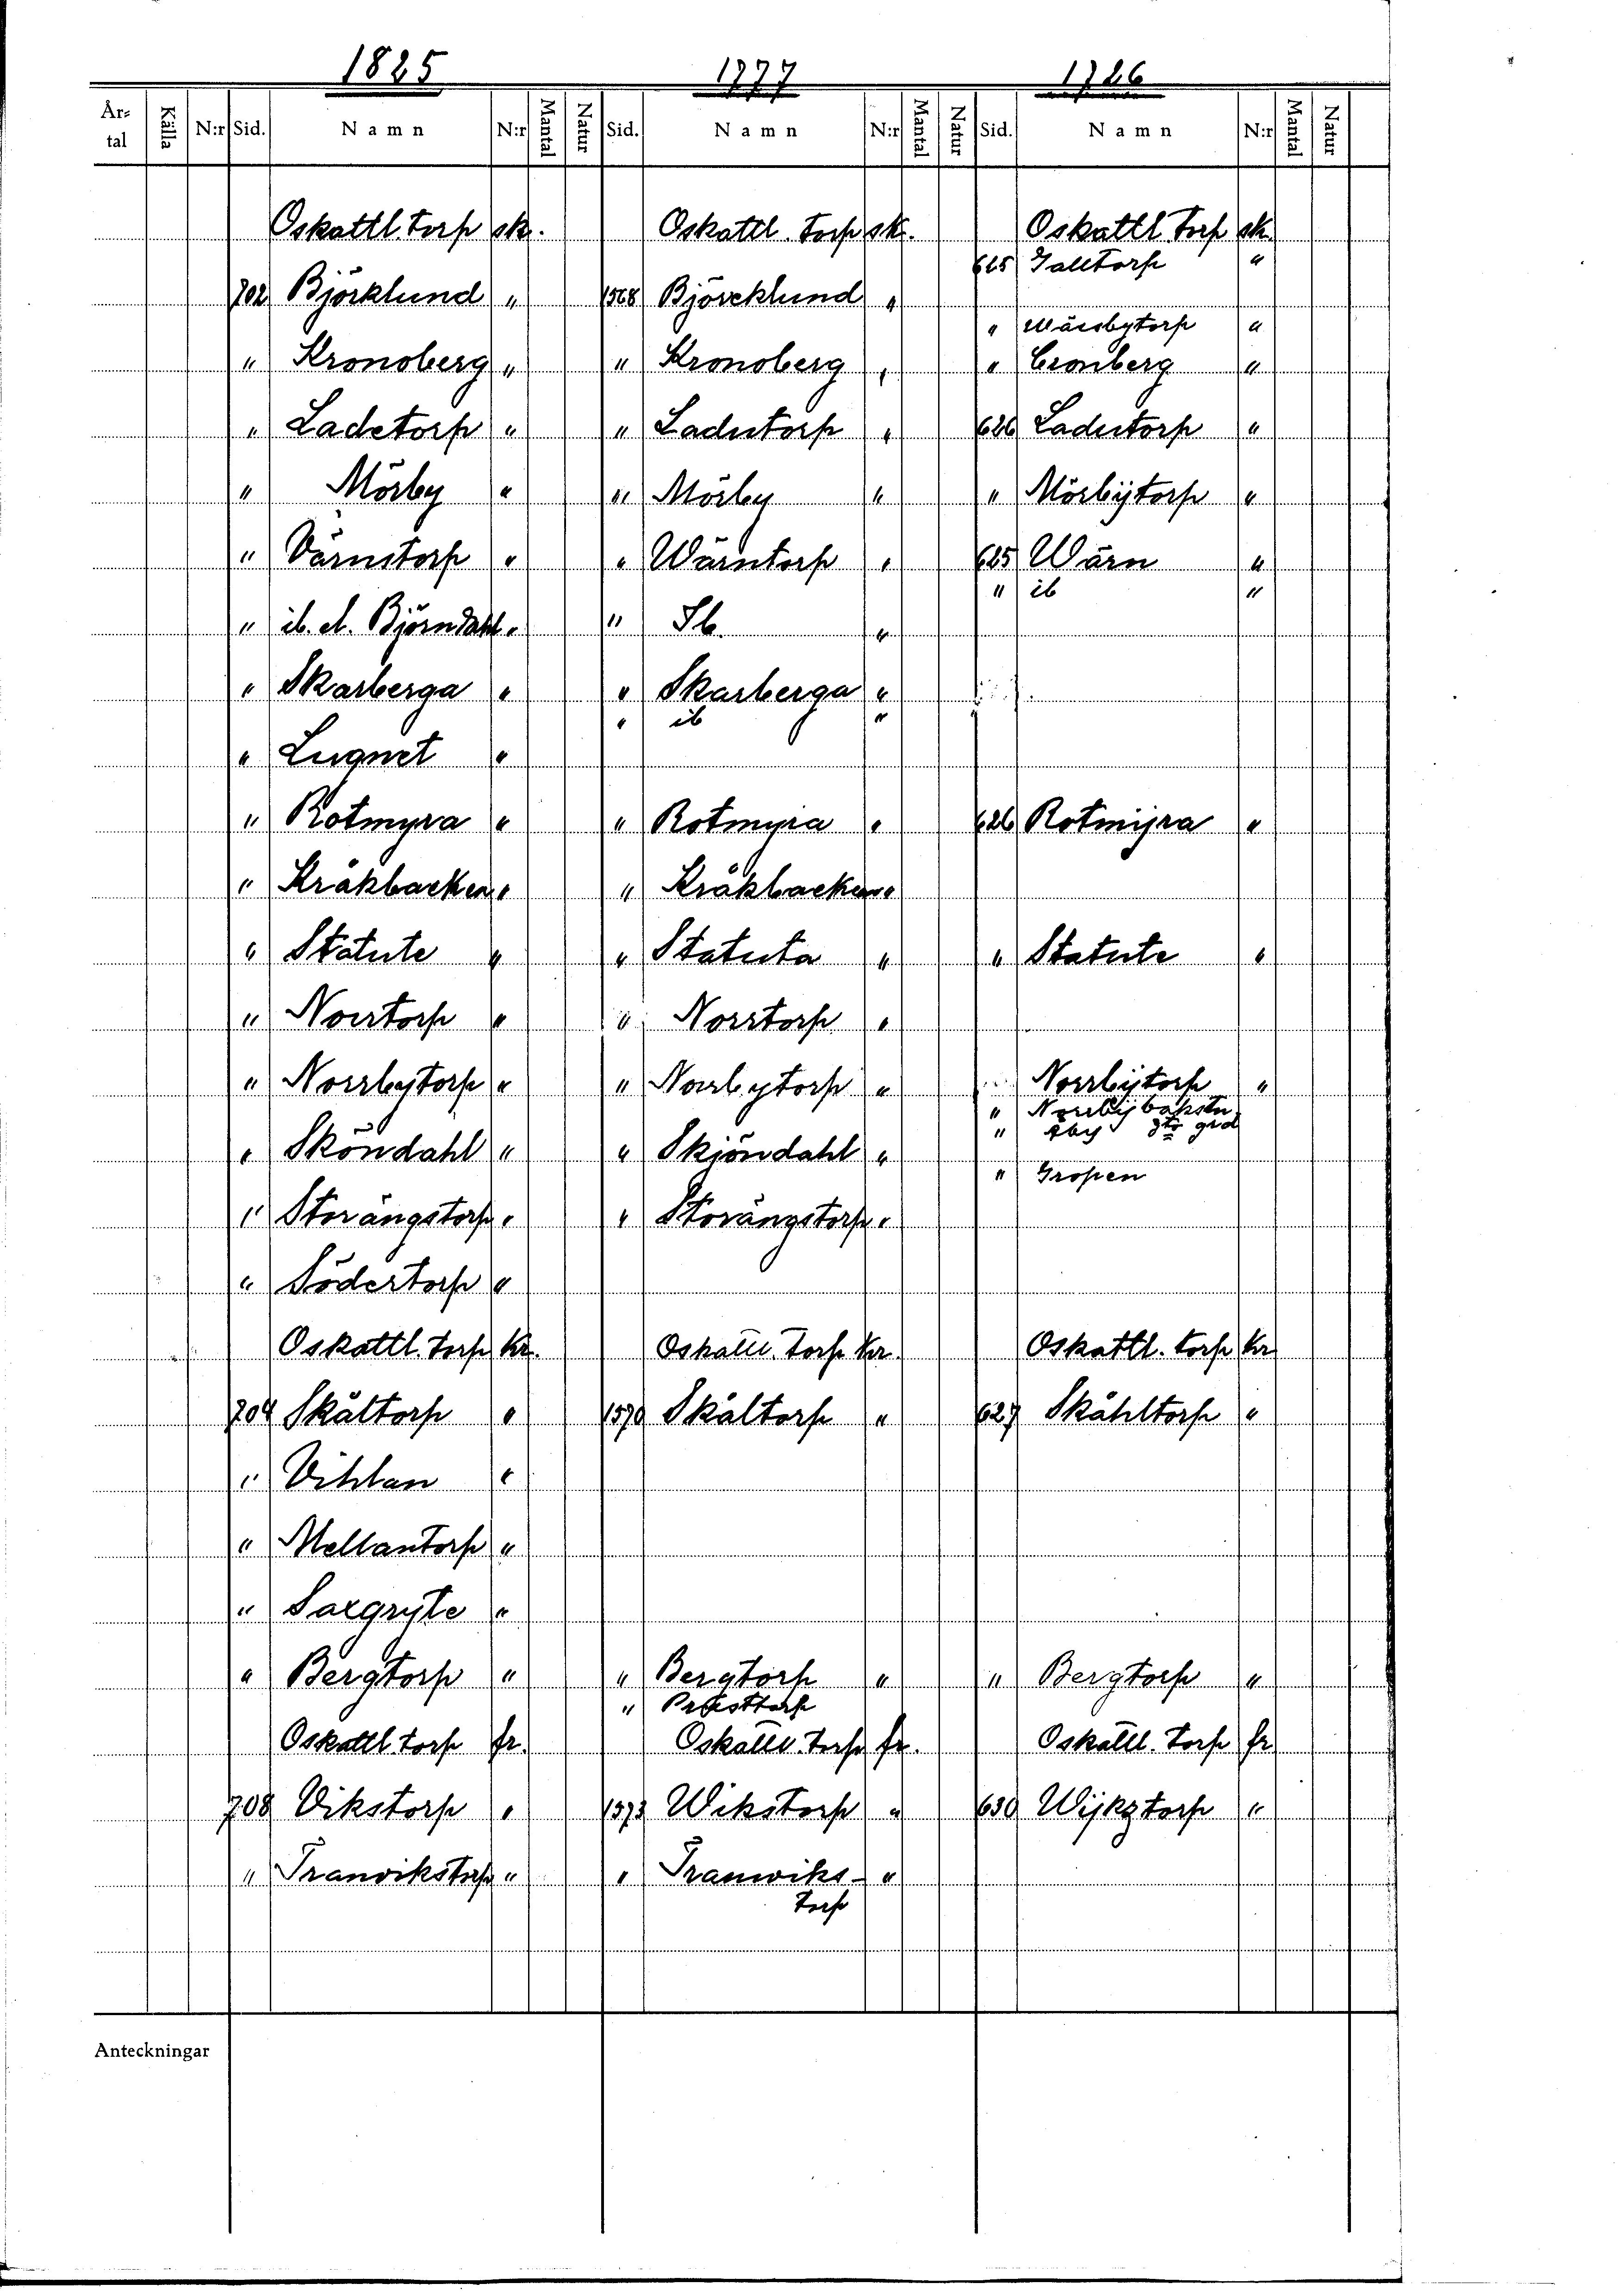 1825 1777 1726
År-tal Källa N:r Sid. Namn N:r Mantal Natur Sid. Namn N:r Mantal Natur Sid. Namn N:r Mantal Natur
Oskattl. torp sk. Oskattl. torp sk. Oskattl. torp sk.
625 Galltorp "
702 Björklund " 1568 Björcklund "
" bytorp "
" Kronoberg " " Kronoberg " " Cronberg "
" Ladetorp " " Ladutorp " 626 Ladutorp "
" Mörby " " Mörby " " Mörbijtorp "
" Värnstorp " " Wärntorp " 625 Wärn "
" ib "
" ib. el. Björndahl " " Ib. "
" Skarberga " " Skarberga "
" ib "
" Lugnet "
" Rotmyra " " Rotmyra " 626 Rotmijra "
" Kråkbacken " " Kråkbacken "
" Statute " " Statuta " " Statute "
" Norrtorp " " Norrtorp "
" Norrbytorp " " Norrbytorp " Norrbijtorp "
" Norrbijbakstu
" Åby
" Sköndahl " " Skjöndahl "
" Gropen
" Storängstorp " " Storängstorp "
" Södertorp "
Oskattl. torp kr. Oskattl. torp kr. Oskattl. torp kr
704 Skåltorp " 1570 Skåltorp " 627 Skåhltorp "
" Vihlan "
" Mellantorp "
" Saxgryte "
" Bergtorp " " Bergtorp " " Bergtorp "
" Prästtorp
Oskattl. torp fr. Oskattl. torp fr. Oskattl. torp fr
708 Vikstorp " 1573 Wikstorp " 630 Wijkztorp "
" Tranvikstorp " " Tranwiks- "
torp
Anteckningar